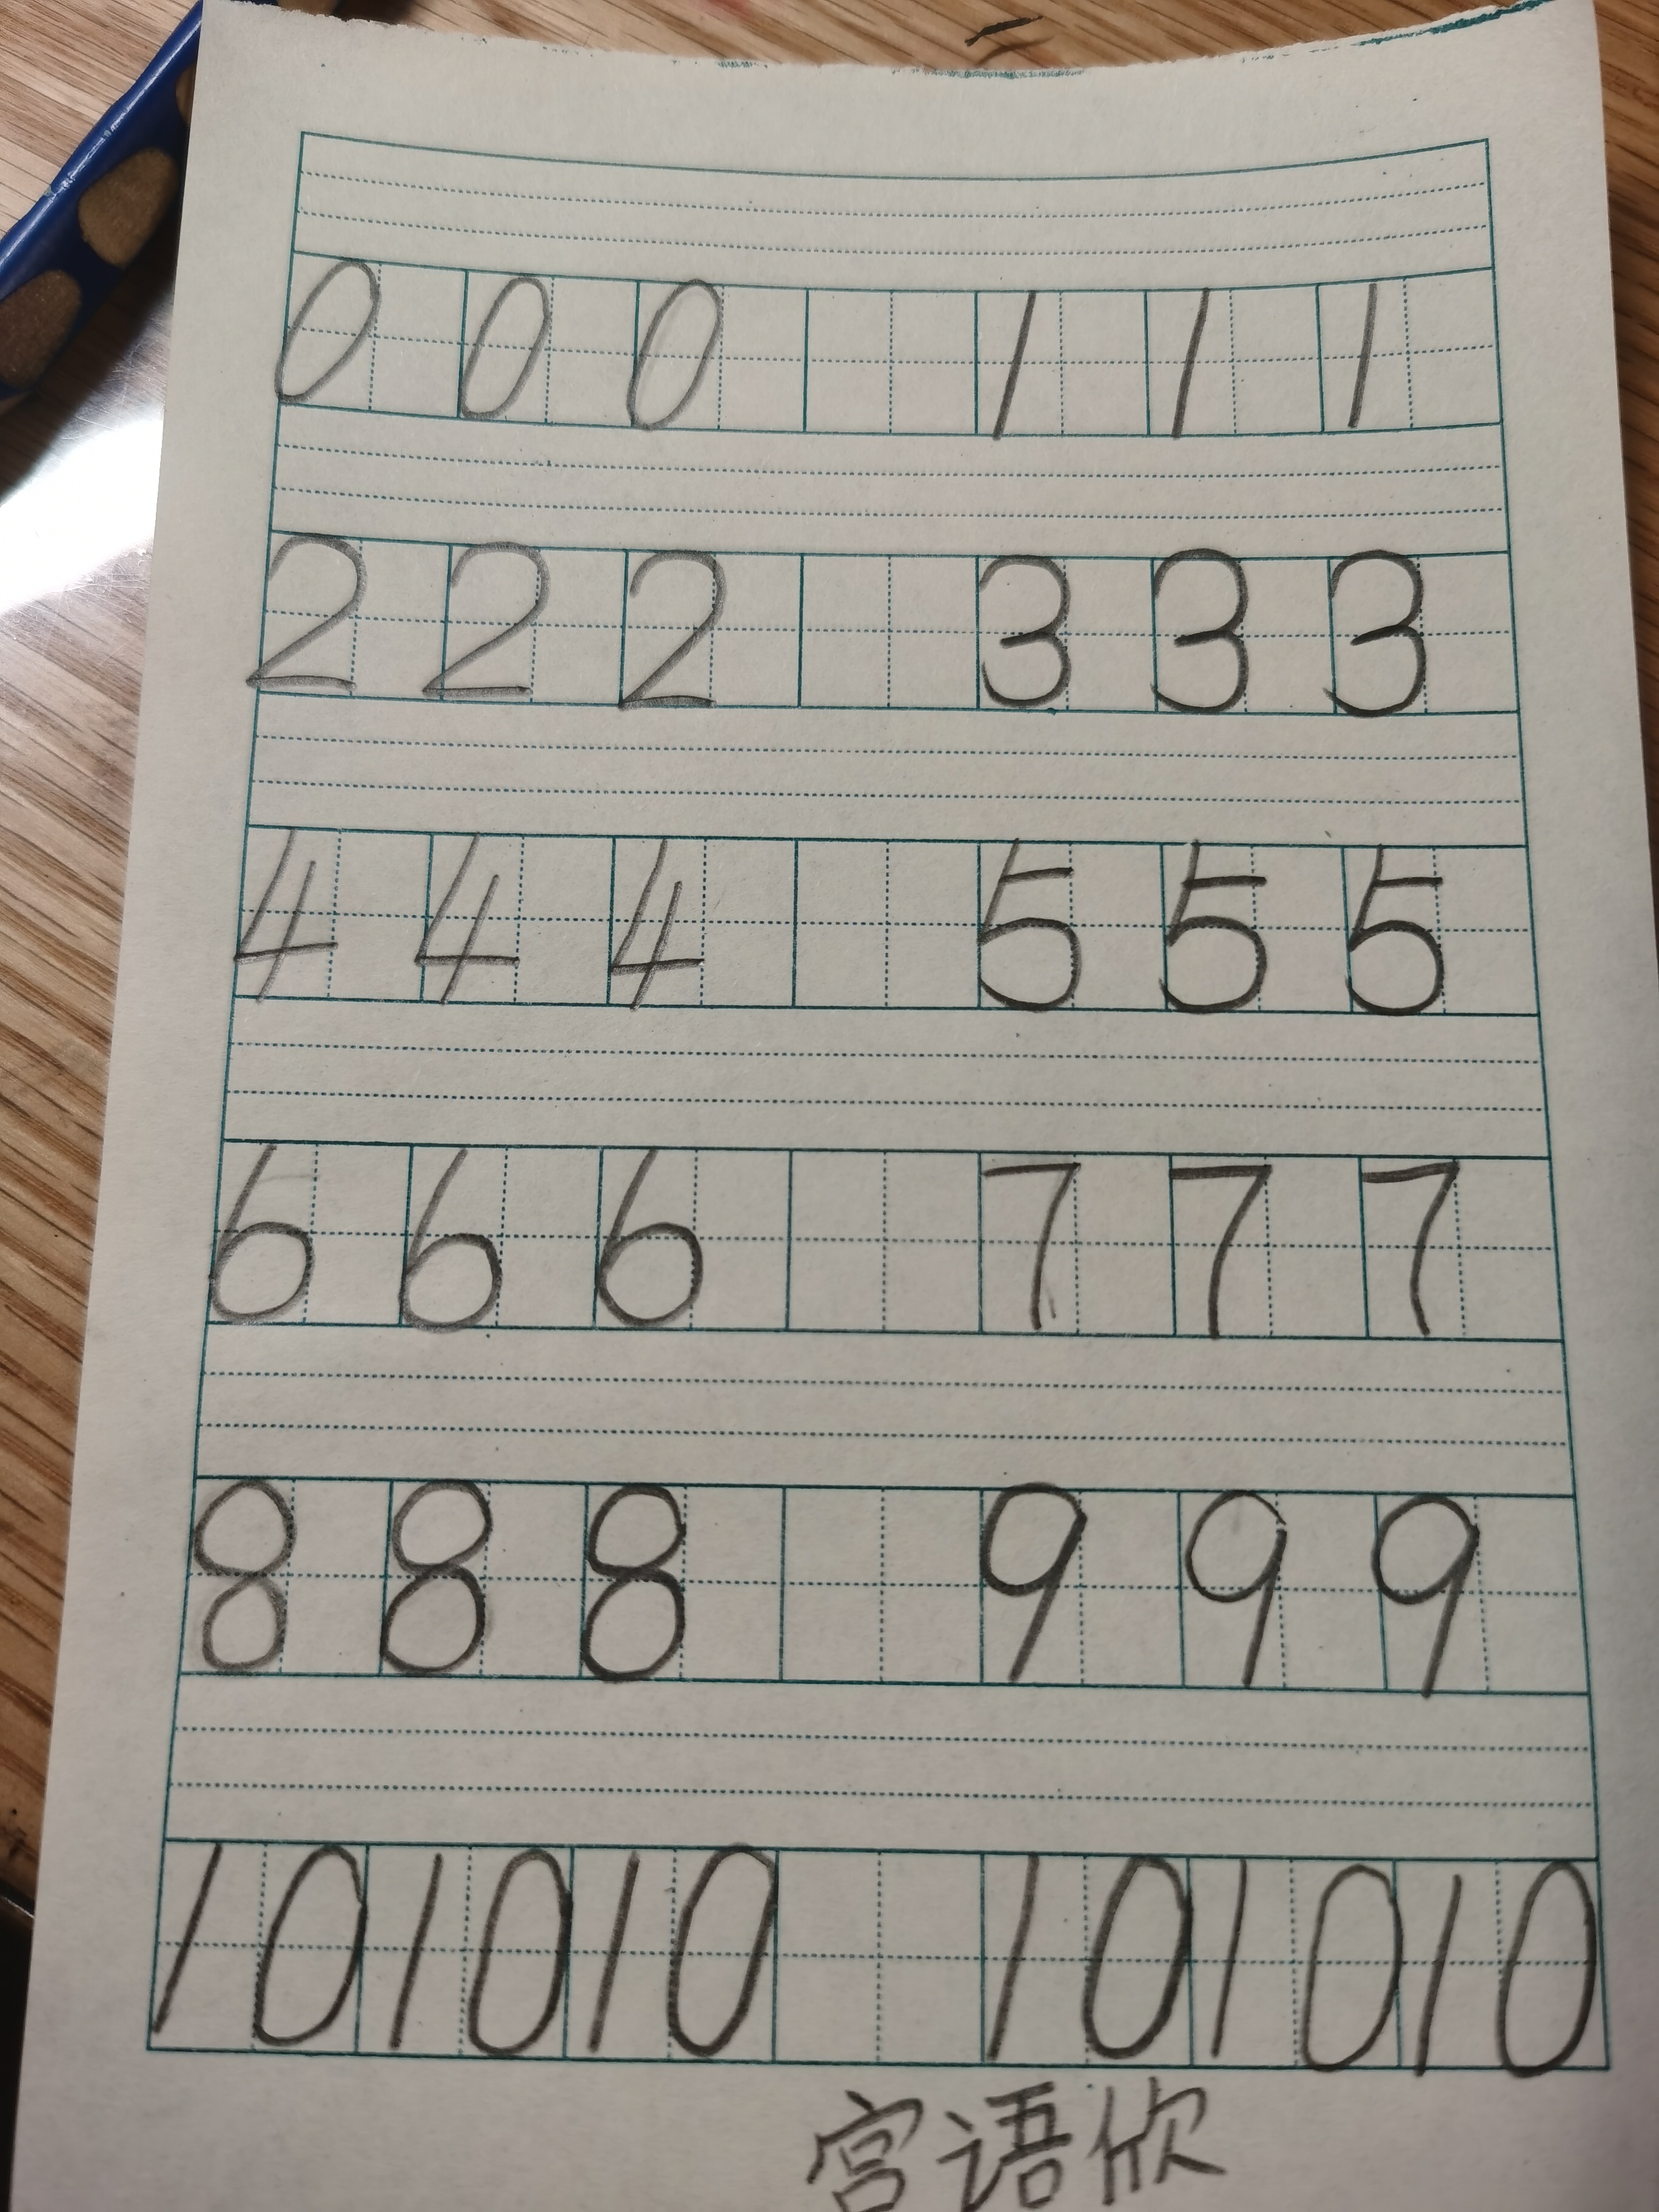 0 0 0 1 1 1
2 2 2 3 3 3
4 4 4 5 5 5
6 6 6 7 7 7
8 8 8 9 9 9
10 10 10 10 10 10
宫语欣